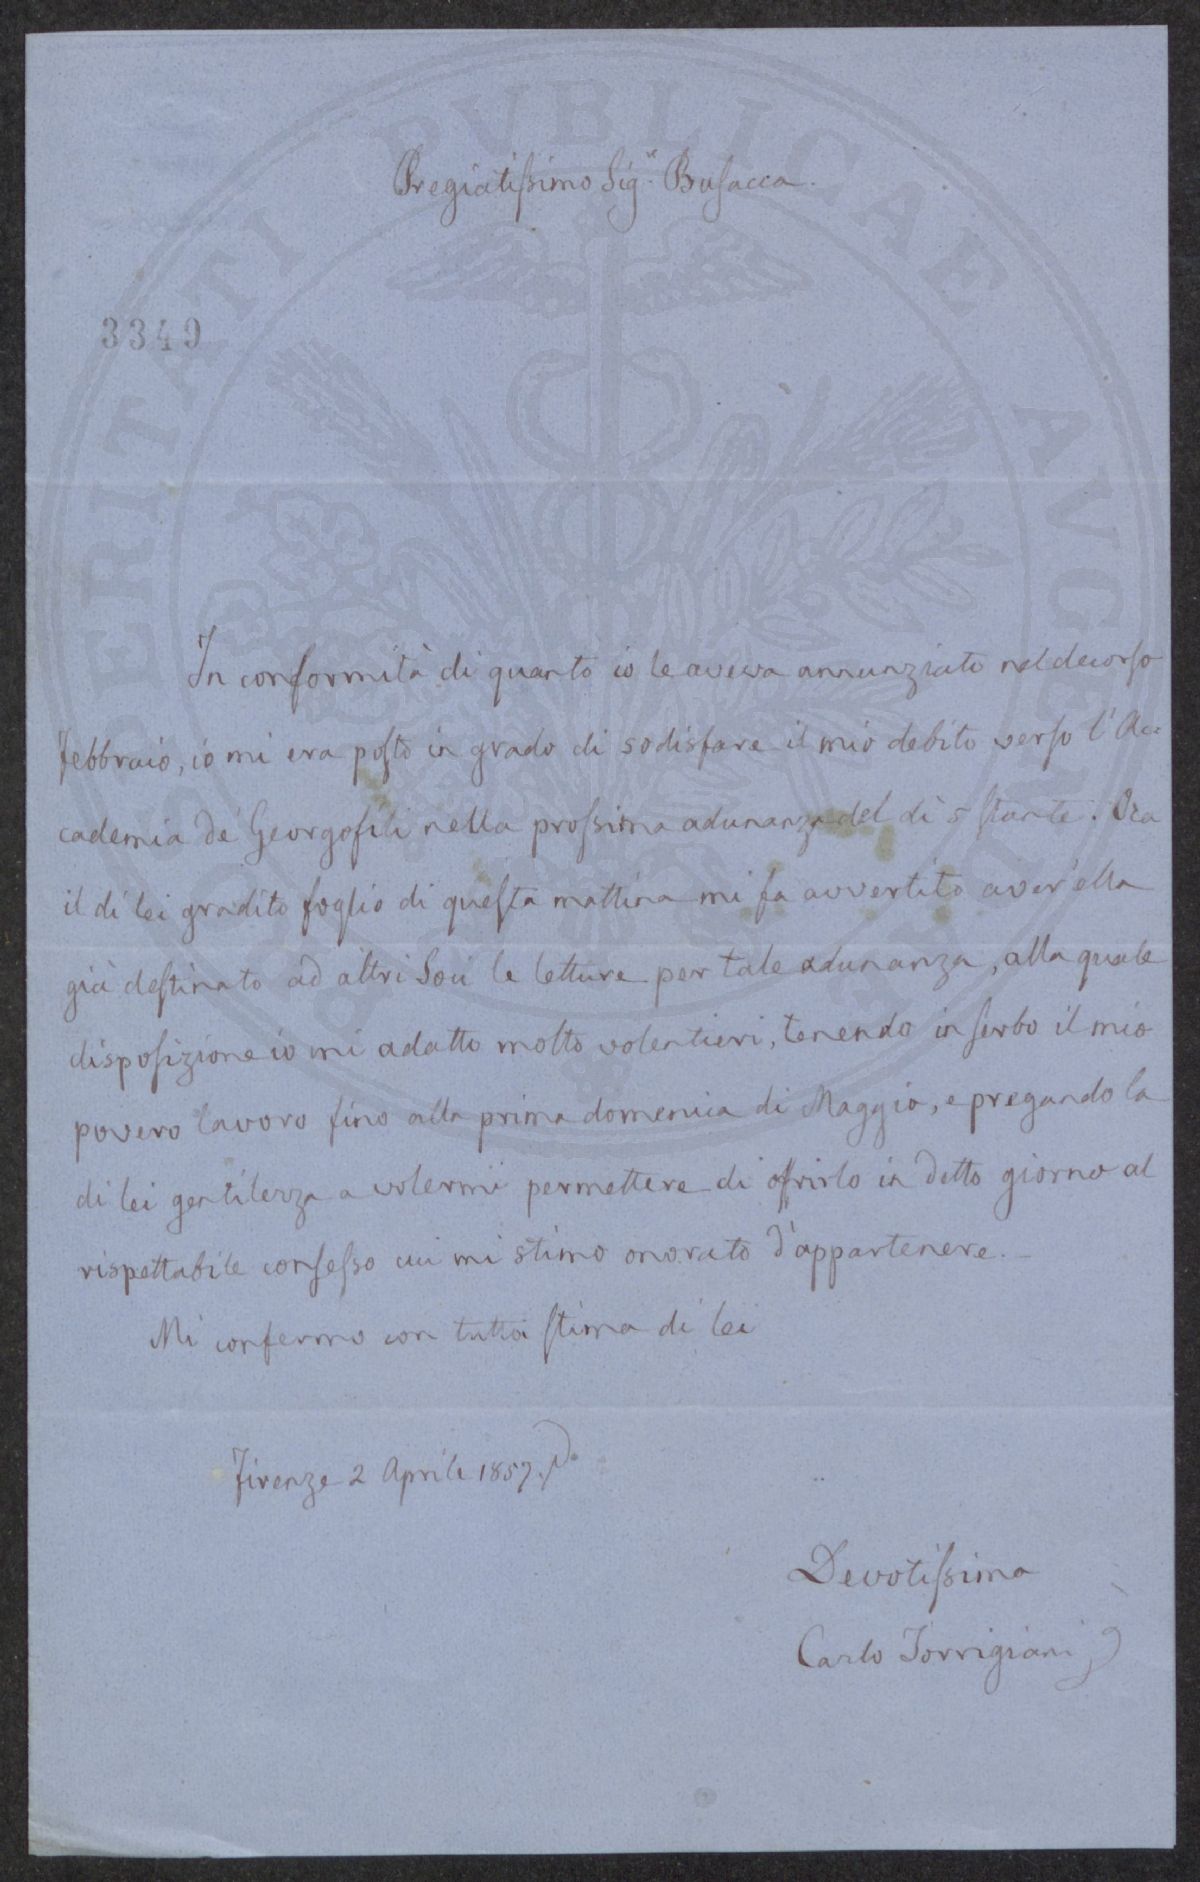 PROSPERITATI PVBLICAE AVGENDAE
Pregiatissimo Sig.r Busacca.
3349
In conformità di quanto io le aveva annunziato nel decorso
febbraio, io mi era posto in grado di sodisfare il mio debito verso l'Ac=
cademia de' Georgofili nella prossima adunanza del dì 5 stante. Ora
il di lei gradito foglio di questa mattina mi fa avvertito aver'ella
già destinato ad altri Soci le letture per tale adunanza, alla quale
disposizione io mi adatto molto volentieri, tenendo in serbo il mio
povero lavoro fino alla prima domenica di Maggio, e pregando la
di lei gentilezza a volermi permettere di offrirlo in detto giorno al
rispettabile consesso cui mi stimo onorato d'appartenere.
Mi confermo con tutta stima di lei
Firenze 2 Aprile 1857.
Devotissimo
Carlo Torrigiani